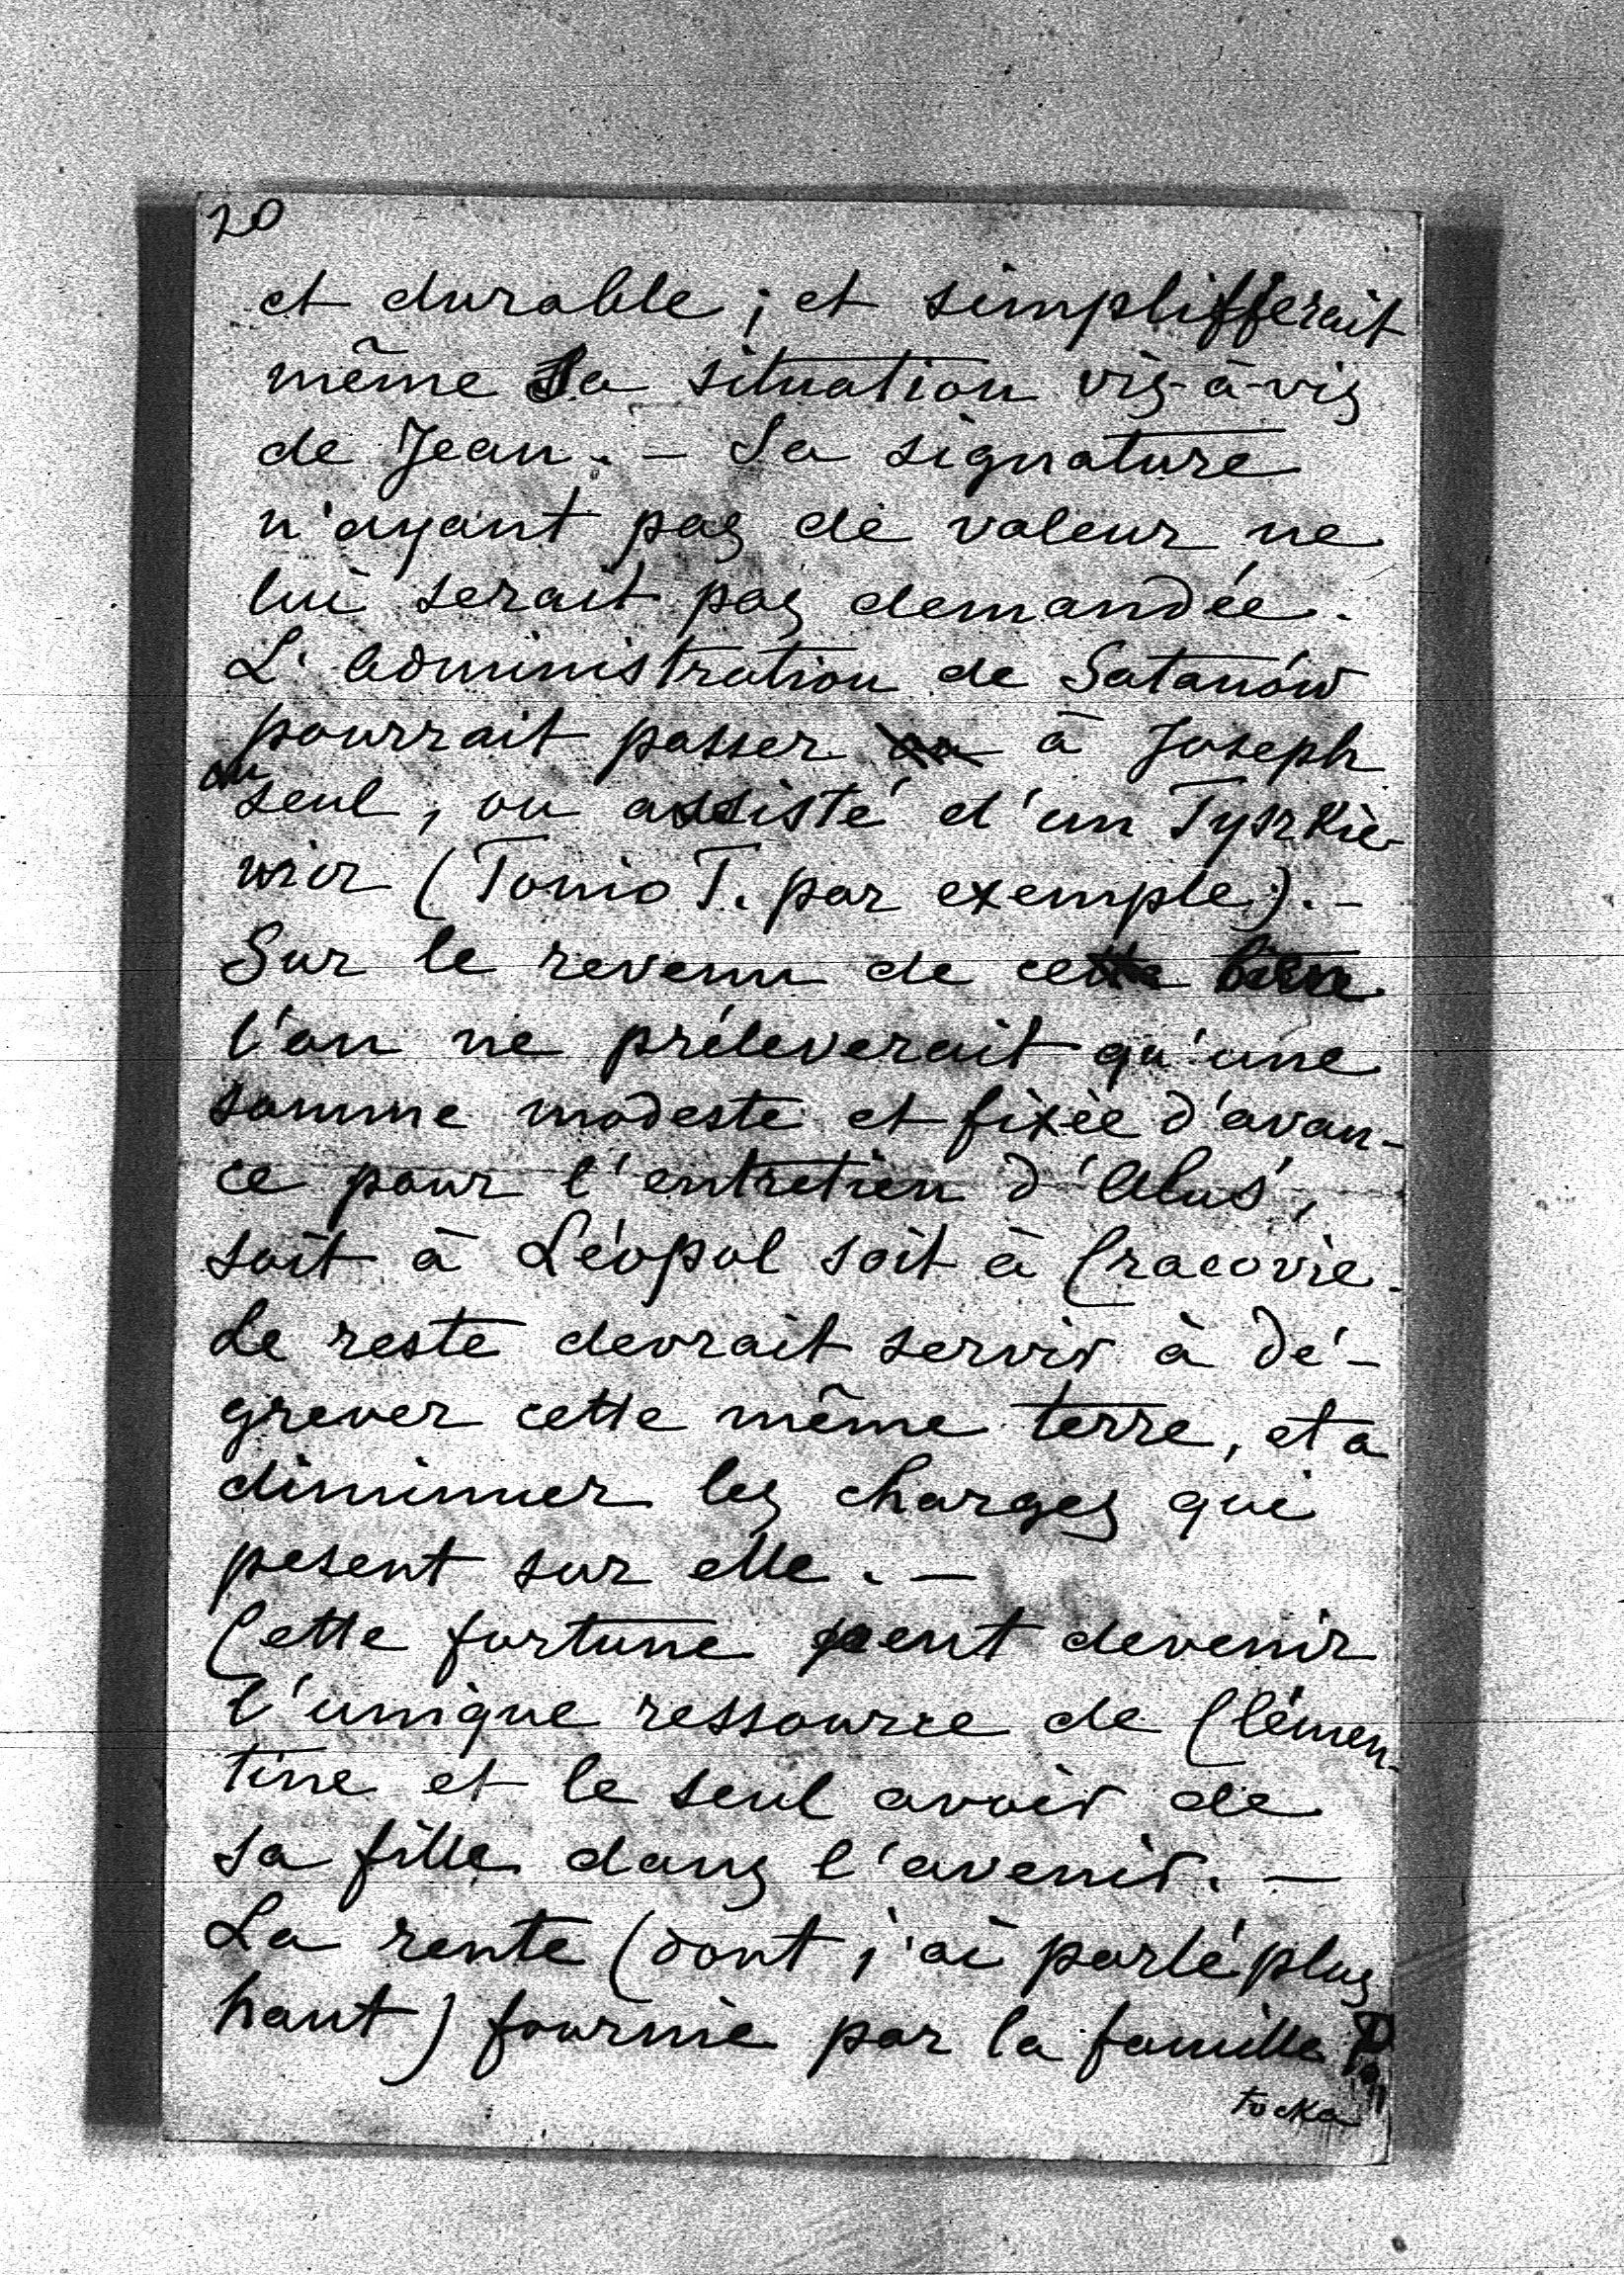 20
et durable ; et simplifierait
même sa situation vis-à-vis
de Jean. – Sa signature
n'ayant pas de valeur ne
lui serait pas demandée.
L'administration de Satanów
pourrait passer à Joseph
ou
seul, ou assisté d'un Tyszkie-
wicz (Tonio T. par exemple). –
Sur le revenu de
l'on ne préleverait qu'une
somme modeste et fixée d'avan-
ce pour l'entretien d'Aluś,
soit à Léopol soit à Cracovie.
Le reste devrait servir à dé-
grever cette même terre, et a
diminuer les charges qui
pesent sur elle. –
Cette fortune peut devenir
l'unique ressource de Clémen-
tine et le seul avoir de
sa fille dans l'avenir. –
La rente (dont j'ai parlé plus
haut) fournie par la famille P.
tocka